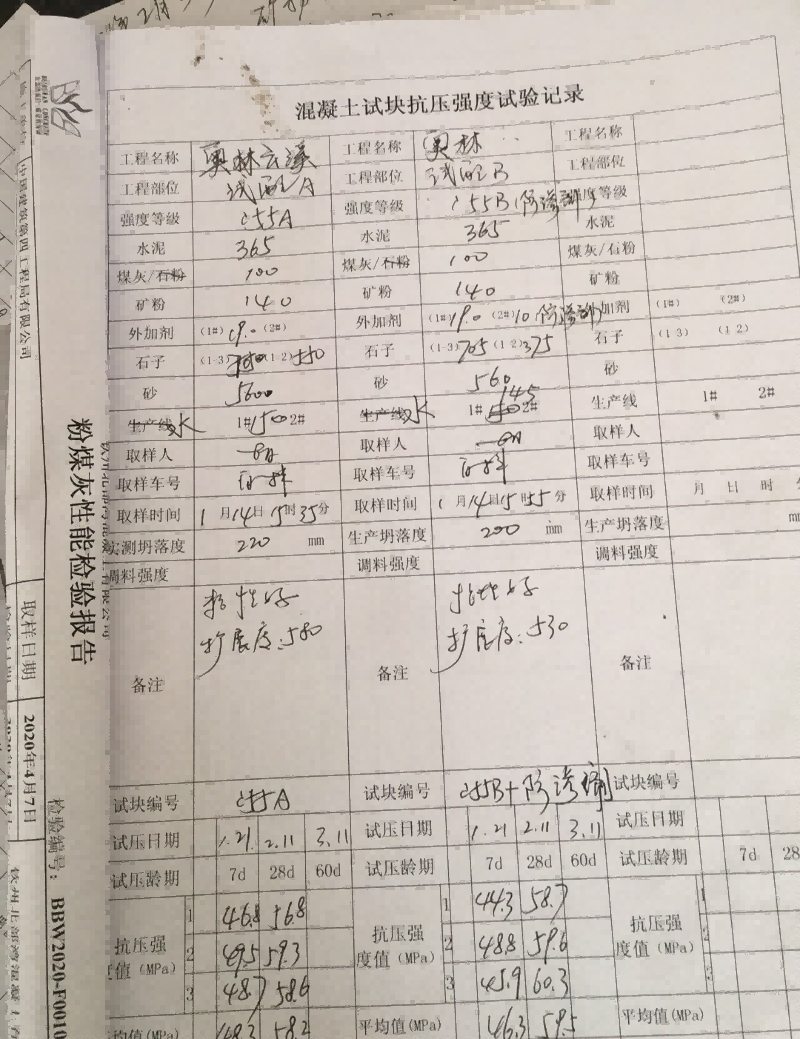 混凝土试块抗压强度试验记录
工程名称 奥林云溪 工程名称 奥林 工程名称
工程部位 试配A 工程部位 试配B 工程部位
强度等级 C55A 强度等级 C55B(防渗 强度等级
水泥 365 水泥 365 水泥
煤灰/石粉 100 煤灰/石粉 100 煤灰/石粉
矿粉 140 矿粉 140 矿粉
外加剂 (1#) 19.0 (2#) 外加剂 (1#)19.0 (2#)10 防渗 外加剂 (1#) (2#)
石子 (1-3) (1-2) 550 石子 (1-3)705 (1-2)375 石子 (1-3) (1-2)
砂 5600 砂 560 砂
生产线 水 1#150 2# 生产线 水 1# 145 2# 生产线 1# 2#
取样人 取样人 取样人
取样车号 取样车号 取样车号
取样时间 1月14日15时35分 取样时间 1月14日15时55分 取样时间 月 日 时
实测坍落度 220 mm 生产坍落度 200 mm 生产坍落度 mm
调料强度 调料强度 调料强度
备注 粘性好 备注 粘性好 备注
扩展度:580 扩展度:530
试块编号 C55A 试块编号 C55B+防渗 试块编号
试压日期 1.21 2.11 3.11 试压日期 1.21 2.11 3.11 试压日期
试压龄期 7d 28d 60d 试压龄期 7d 28d 60d 试压龄期 7d 28
抗压强度值(MPa) 抗压强度值(MPa) 抗压强度值(MPa)
1 46.8 56.8 1 44.3 58.7 1
2 49.5 59.3 2 48.8 59.6 2
3 48.7 58.6 3 45.9 60.3
平均值(MPa) 48.3 58.2 平均值(MPa) 46.3 59.5 平均值(MPa)
中国建筑第四工程局有限公司
粉煤灰性能检验报告
取样日期 2020年4月7日
检验编号: BBW2020-F0010
钦州北部湾混凝土有